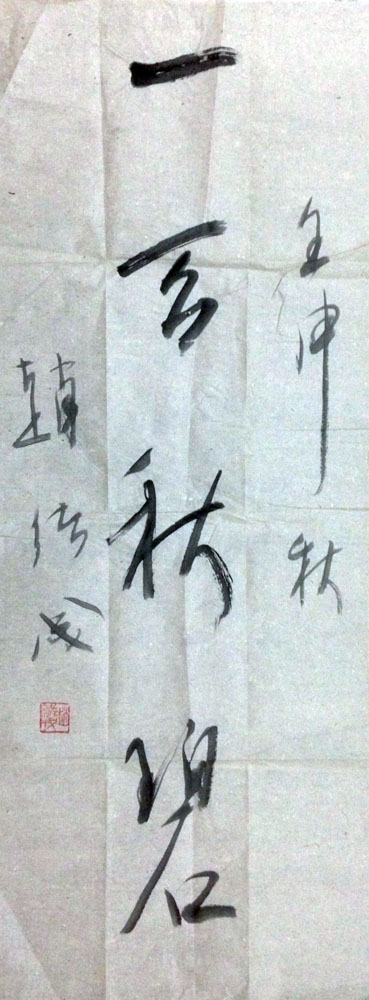 壬申秋
一言秋碧
趙绪成